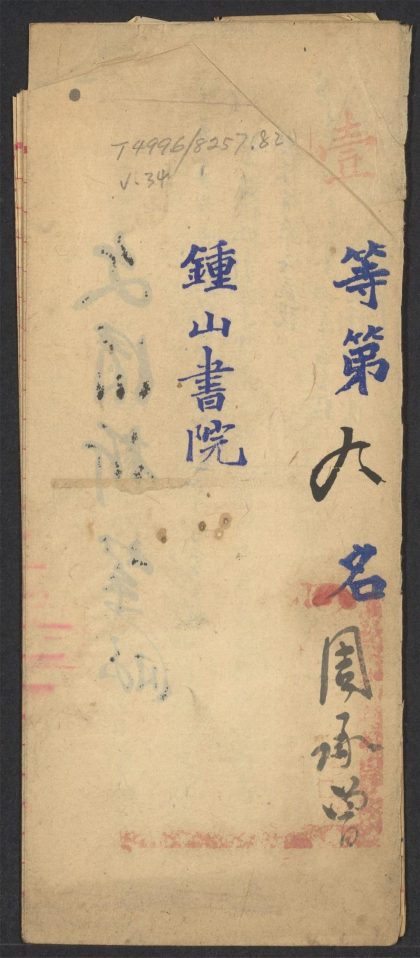 T4996/8257.82
v.34
壹等第九名周承曾
鍾山書院